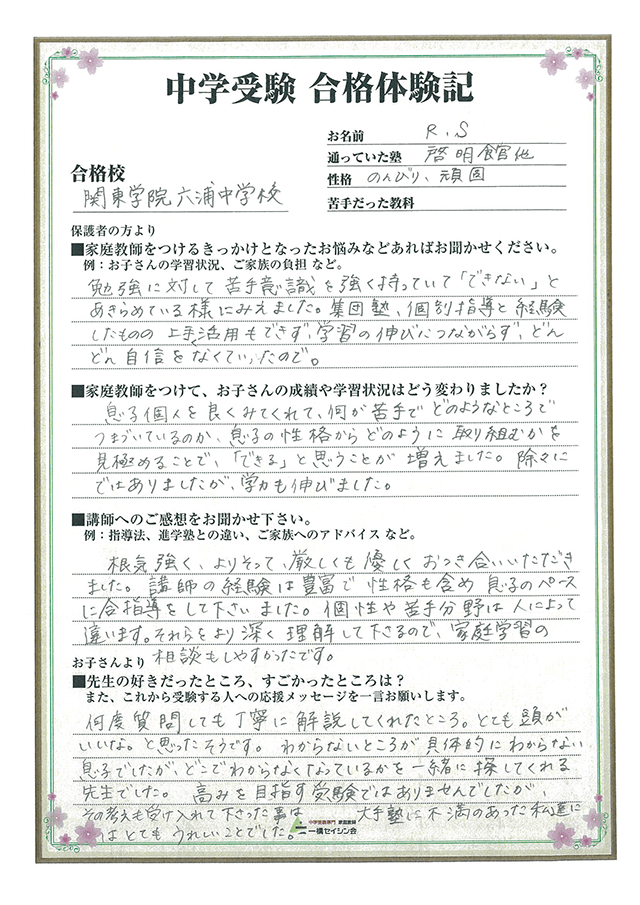 中学受験 合格体験記
お名前 R.S
通っていた塾 啓明館他
合格校 関東学院六浦中学校
性格 のんびり、頑固
苦手だった教科
保護者の方より
■家庭教師をつけるきっかけとなったお悩みなどあればお聞かせください。
例:お子さんの学習状況、ご家族の負担 など。
勉強に対して苦手意識を強く持っていて「できない」と
あきらめている様にみえました。集団塾、個別指導と経験
したものの上手く活用もできず、学習の伸びにつながらず、どん
どん自信をなくていったので。
■家庭教師をつけて、お子さんの成績や学習状況はどう変わりましたか?
息子個人を良くみてくれて、何が苦手でどのようなところで
つまづいているのか、息子の性格からどのように取り組むかを
見極めることで、「できる」と思うことが増えました。除々に
ではありましたが、学力も伸びました。
■講師へのご感想をお聞かせ下さい。
例:指導法、進学塾との違い、ご家族へのアドバイス など。
根気強く、よりそって、厳しくも優しくおつき合いいただき
ました。講師の経験は豊富で性格も含め息子のペース
に合指導をして下さいました。個性や苦手分野は人によって
違います。それらをより深く理解して下さるので、家庭学習の
相談もしやすかったです。
お子さんより
■先生の好きだったところ、すごかったところは?
また、これから受験する人への応援メッセージを一言お願いします。
何度質問しても丁寧に解説してくれたところ。とても頭が
いいな。と思ったそうです。わからないところが具体的にわからない
息子でしたが、どこでわからなくなっているかを一緒に探してくれる
先生でした。高みを目指す受験ではありませんでしたが、
その考えも受け入れて下さった事は 大手塾に不満のあった私達に
はとてもうれしいことでした。
中学受験専門 家庭教師
一橋セイシン会